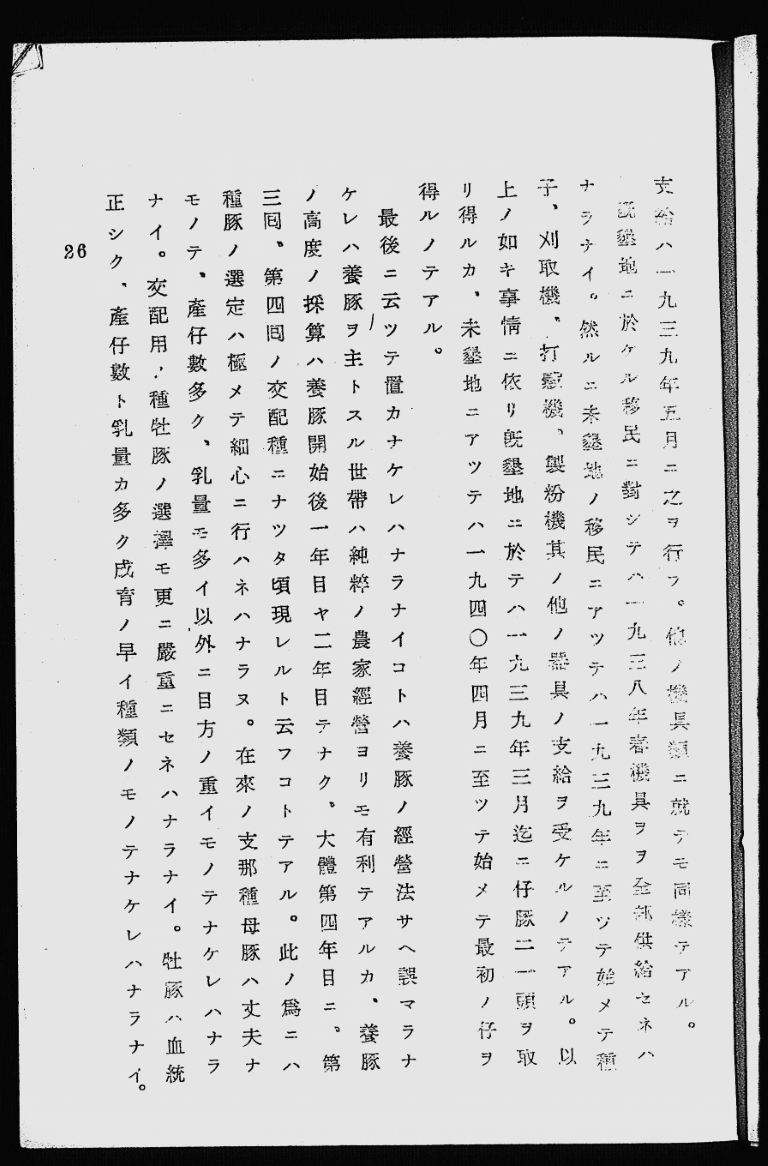 支給ハ一九三九年五月ニ之ヲ行フ。他ノ機具類ニ就テモ同樣テアル。
既墾地ニ於ケル移民ニ對シテハ一九三八年春機具ヲヲ全部供給セネハ
ナラナイ。然ルニ未墾地ノ移民ニアツテハ一九三九年ニ至ツテ始メテ種
子、刈取機、打壓機、製粉機其ノ他ノ器具ノ支給ヲ受ケルノテアル。以
上ノ如キ事情ニ依リ既墾地ニ於テハ一九三九年三月迄ニ仔豚二一頭ヲ取
リ得ルカ、未墾地ニアツテハ一九四〇年四月ニ至ツテ始メテ最初ノ仔ヲ
得ルノテアル。
最後ニ云ツテ置カナケレハナラナイコトハ養豚ノ經營法サヘ誤マラナ
ケレハ養豚ヲ主トスル世帶ハ純粹ノ農家經營ヨリモ有利テアルカ、養豚
ノ高度ノ採算ハ養豚開始後一年目ヤ二年目テナク、大體第四年目ニ、第
三囘、第四囘ノ交配種ニナツタ頃現レルト云フコトテアル。此ノ爲ニハ
種豚ノ選定ハ極メテ細心ニ行ハネハナラヌ。在來ノ支那種母豚ハ丈夫ナ
モノテ、產仔數多ク、乳量モ多イ以外ニ目方ノ重イモノテナケレハナラ
ナイ。交配用、種牡豚ノ選擇モ更ニ嚴重ニセネハナラナイ。牡豚ハ血統
正シク、產仔數ト乳量カ多ク成育ノ早イ種類ノモノテナケレハナラナイ。
26